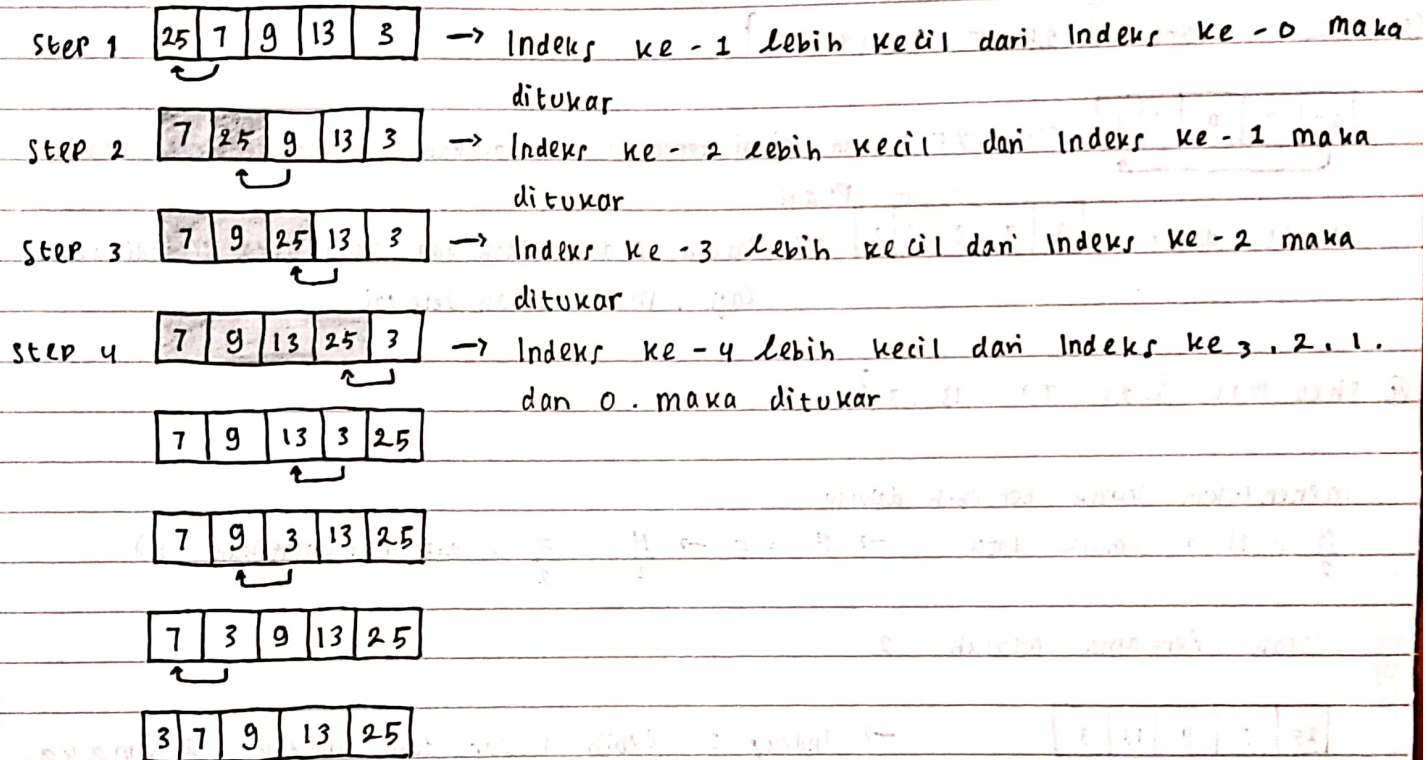 Step 1 25 7 9 13 3 → Indeks ke - 1 lebih kecil dari Indeks ke - 0 maka
ditukar
Step 2 7 25 9 13 3 → Indeks ke - 2 lebih kecil dari Indeks ke - 1 maka
ditukar
Step 3 7 9 25 13 3 → Indeks ke - 3 lebih kecil dari Indeks ke - 2 maka
ditukar
Step 4 7 9 13 25 3 → Indeks ke - 4 lebih kecil dari Indeks ke 3, 2, 1.
dan 0. maka ditukar
7 9 13 3 25
7 9 3 13 25
7 3 9 13 25
3 7 9 13 25